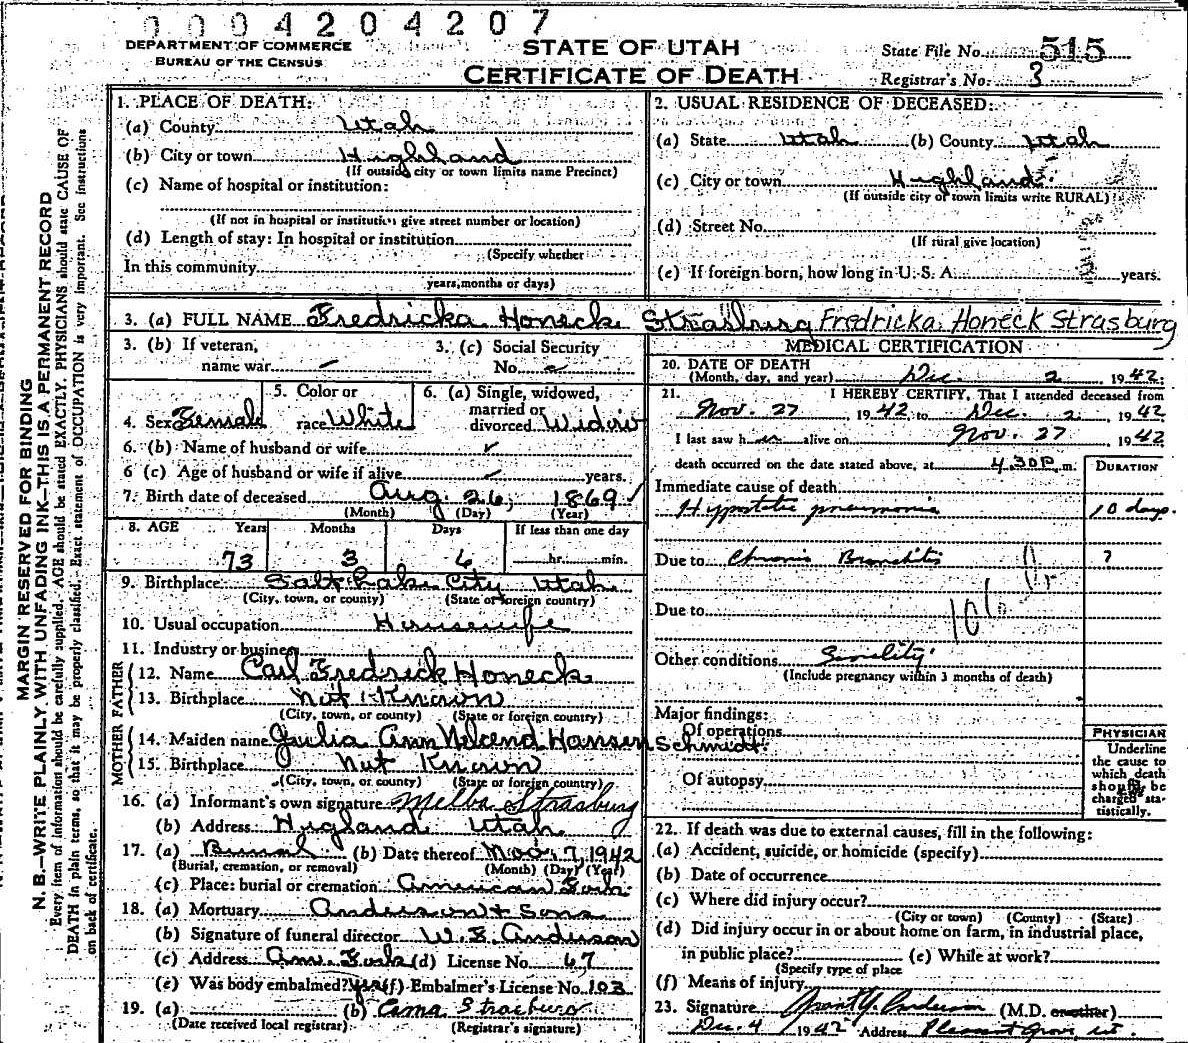 0004204207
DEPARTMENT OF COMMERCE
BUREAU OF THE CENSUS
STATE OF UTAH
CERTIFICATE OF DEATH
State File No. 515
Registrar's No. 3
MARGIN RESERVED FOR BINDING
N. B.—WRITE PLAINLY, WITH UNFADING INK—THIS IS A PERMANENT RECORD
Every item of information should be carefully supplied. AGE should be stated EXACTLY. PHYSICIANS should state CAUSE OF
DEATH in plain terms, so that it may be properly classified. Exact statement of OCCUPATION is very important. See instructions
on back of certificate.
1. PLACE OF DEATH:
(a) County Utah
(b) City or town Highland
(If outside city or town limits name Precinct)
(c) Name of hospital or institution:
(If not in hospital or institution give street number or location)
(d) Length of stay: In hospital or institution
(Specify whether
In this community
years, months or days)
2. USUAL RESIDENCE OF DECEASED:
(a) State Utah (b) County Utah
(c) City or town Highland
(If outside city or town limits write RURAL)
(d) Street No.
(If rural give location)
(e) If foreign born, how long in U. S. A. years.
3. (a) FULL NAME Fredricka Honeck Strasburg Fredricka Honeck Strasburg
3. (b) If veteran,
name war
3. (c) Social Security
No.
4. Sex Female
5. Color or
race White
6. (a) Single, widowed,
married or
divorced Widow
6. (b) Name of husband or wife
6 (c) Age of husband or wife if alive years.
7. Birth date of deceased Aug 26, 1869
(Month) (Day) (Year)
8. AGE Years Months Days If less than one day
73 3 6 hr. min.
9. Birthplace Salt Lake City Utah
(City, town, or county) (State or foreign country)
10. Usual occupation Housewife
11. Industry or business
FATHER
12. Name Carl Fredrick Honeck
13. Birthplace Not Known
(City, town, or county) (State or foreign country)
MOTHER
14. Maiden name Julia Ann Hansen Schmidt.
15. Birthplace Not Known
(City, town, or county) (State or foreign country)
16. (a) Informant's own signature Melba Strasburg
(b) Address Higland Utah
17. (a) Burial (b) Date thereof 7, 1942
(Burial, cremation, or removal) (Month) (Day) (Year)
(c) Place: burial or cremation American Fork
18. (a) Mortuary Anderson & Sons
(b) Signature of funeral director W. E. Anderson
(c) Address Am. Fork (d) License No. 67
(e) Was body embalmed? yes (f) Embalmer's License No. 103
19. (a) (b) Strasburg
(Date received local registrar) (Registrar's signature)
MEDICAL CERTIFICATION
20. DATE OF DEATH
(Month, day, and year) Dec. 2, 1942
21. I HEREBY CERTIFY, That I attended deceased from
Nov. 27, 1942 to Dec. 2, 1942
I last saw her alive on Nov. 27, 1942
death occurred on the date stated above, at 4.30P m.
DURATION
Immediate cause of death
Hypostatic pneumonia 10 days.
Due to Chronic Bronchitis ?
Due to
Other conditions Senility
(Include pregnancy within 3 months of death)
Major findings:
Of operations
Of autopsy
PHYSICIAN
Underline
the cause to
which death
should be
charged sta-
tistically.
22. If death was due to external causes, fill in the following:
(a) Accident, suicide, or homicide (specify)
(b) Date of occurrence
(c) Where did injury occur?
(City or town) (County) (State)
(d) Did injury occur in or about home on farm, in industrial place,
in public place? (e) While at work?
(Specify type of place
(f) Means of injury
23. Signature Grant Y. Anderson (M.D. or other)
Dec. 4 1942 Address Pleasant Grove Ut.